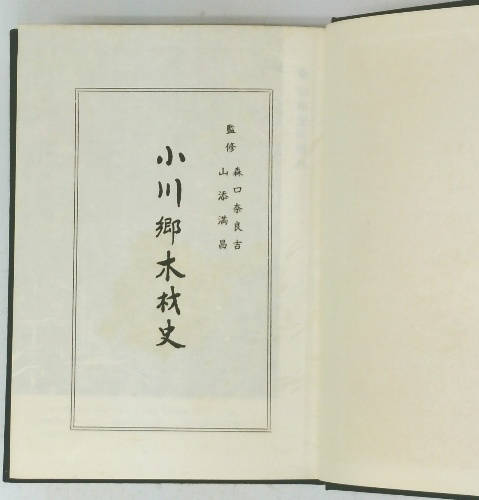 監修
森口奈良吉
山添満昌
小川郷木材史